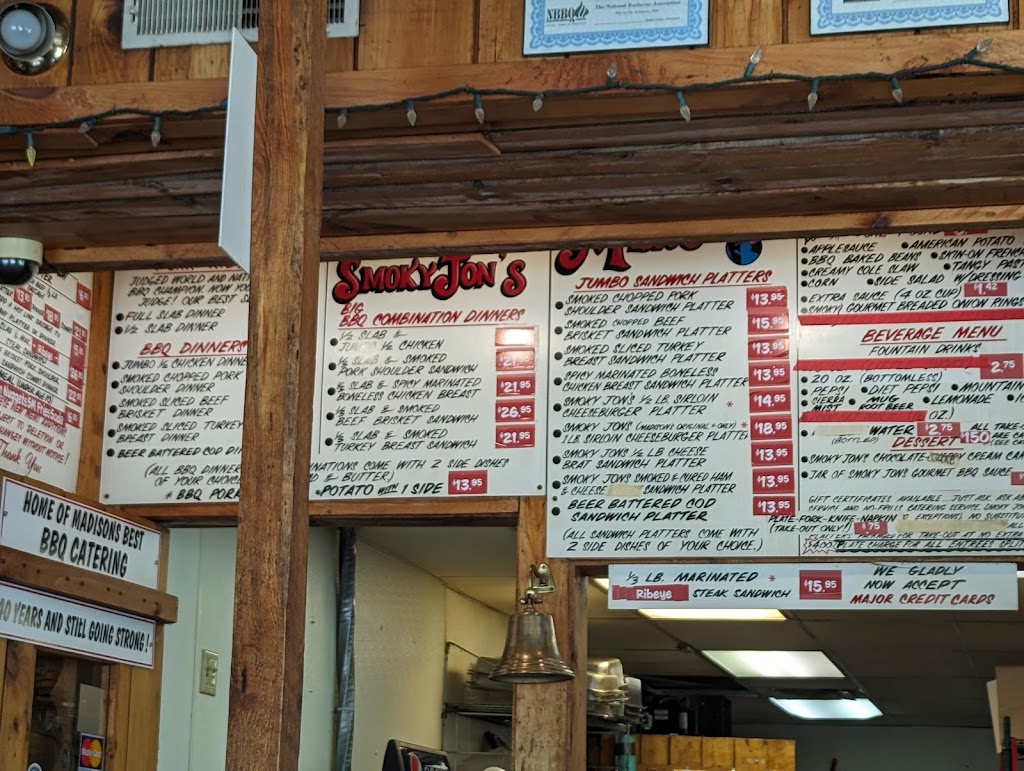 NBBQ
The National Barbecue Association
JUDGED WORLD AND NAT
BBQ CHAMPION. NOW YOU
JUDGE! OUR BEST
FULL SLAB DINNER
1/2 SLAB DINNER
BBQ DINNERS
JUMBO 1/2 CHICKEN DINNE
SMOKED CHOPPED PORK
SHOULDER DINNER
SMOKED SLICED BEEF
BRISKET DINNER
SMOKED SLICED TURKEY
BREAST DINNER
BEER BATTERED COD DI
(ALL BBQ DINNER
OF YOUR CHOICE
* BBQ POR
SMOKY JON'S
BIG
BBQ COMBINATION DINNERS
1/2 SLAB &
JUMBO 1/2 CHICKEN
1/2 SLAB & SMOKED
PORK SHOULDER SANDWICH
1/2 SLAB & SPICY MARINATED
BONELESS CHICKEN BREAST $21.95
1/2 SLAB & SMOKED
BEEF BRISKET SANDWICH $26.95
1/2 SLAB & SMOKED
TURKEY BREAST SANDWICH $21.95
NATIONS COME WITH 2 SIDE DISHES
& BUTTER.)
POTATO WITH 1 SIDE $13.95
JUMBO SANDWICH PLATTERS
SMOKED CHOPPED PORK
SHOULDER SANDWICH PLATTER $13.95
SMOKED CHOPPED BEEF
BRISKET SANDWICH PLATTER $15.95
SMOKED SLICED TURKEY
BREAST SANDWICH PLATTER $13.95
SPICY MARINATED BONELESS
CHICKEN BREAST SANDWICH PLATTER $13.95
SMOKY JON'S 1/2 LB. SIRLOIN
CHEESEBURGER PLATTER * $14.95
SMOKY JON'S (MADISON'S ORIGINAL + ONLY) *
1 LB SIRLOIN CHEESEBURGER PLATTER $18.95
SMOKY JON'S 1/2 LB CHEESE
BRAT SANDWICH PLATTER $13.95
SMOKY JON'S SMOKED & CURED HAM
& CHEESE SANDWICH PLATTER $13.95
BEER BATTERED COD
SANDWICH PLATTER $13.95
(ALL SANDWICH PLATTERS COME WITH
2 SIDE DISHES OF YOUR CHOICE.)
APPLESAUCE AMERICAN POTATO
BBQ BAKED BEANS SKIN-ON FRENCH
CREAMY COLE SLAW TANGY PAST
CORN SIDE SALAD W/DRESSING
EXTRA SAUCE (4 OZ CUP) $1.42
SMOKY GOURMET BREADED ONION RINGS
BEVERAGE MENU
FOUNTAIN DRINKS
2.75
20 OZ. (BOTTOMLESS)
PEPSI DIET PEPSI MOUNTAIN
SIERRA MUG LEMONADE
MIST ROOT BEER
OZ)
WATER $2.75 ALL TAKE-
(BOTTLED) DESSERT 150 ARE CA
SMOKY JON'S CHOCOLATE CREAM CA
JAR OF SMOKY JON'S GOURMET BBQ SAUCE
GIFT CERTIFICATES AVAILABLE... JUST ASK
SERVICE AND NO-FRILLS CATERING SERVICE.
PLATE-FORK-KNIFE-NAPKIN
(TAKE-OUT ONLY!) $.75
$4.00 PLATE CHARGE FOR ALL ENTREES SPLIT
1/3 LB. MARINATED *
Ribeye STEAK SANDWICH $15.95
WE GLADLY
NOW ACCEPT
MAJOR CREDIT CARDS
Thank You
HOME OF MADISONS BEST
BBQ CATERING
40 YEARS AND STILL GOING STRONG!
MasterCard